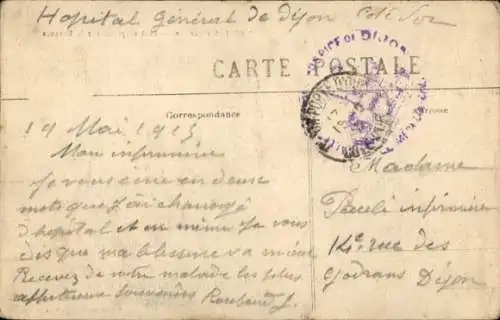 Hopital Général de Dijon Côte d'or
HOSPICE DE DIJON
CARTE POSTALE
Correspondance
Adresse
19 Mai 1915
Mon infirmière
Je vous écrie en deux
mots que J'ai changé
d'hopital et en même Je vous
dis que ma blessure va mieu
Recevez de votre malade les plus
affectueux souvenirs J.
Madame
Pauli infirmière
rue des
Godrans Dijon